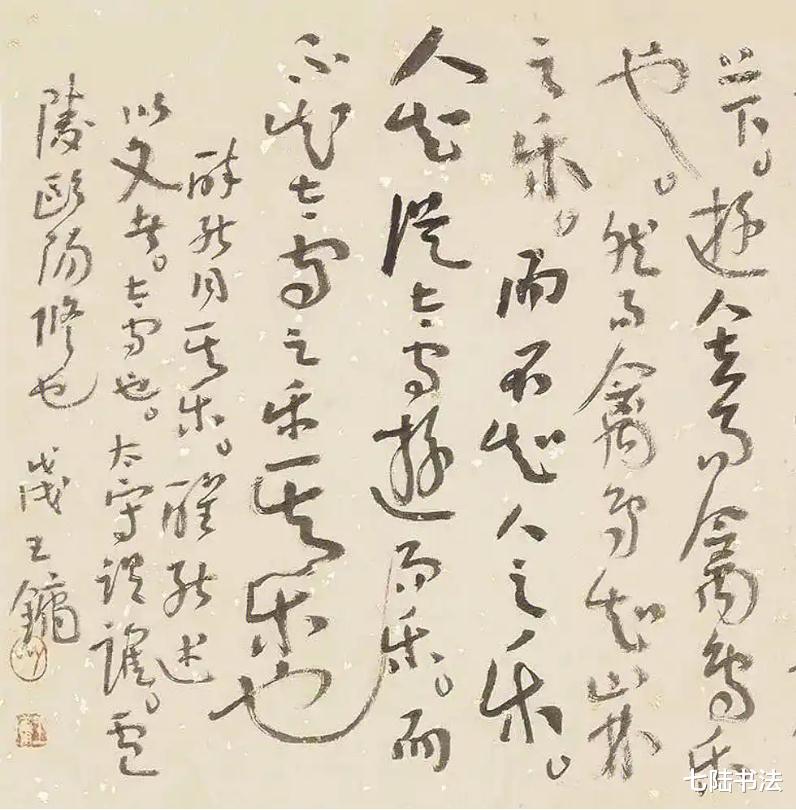 上下。遊人去而禽鳥乐
也。然而禽鳥知山林
之乐。而不知人之乐。
人知從太守遊而乐。而
不知太守之乐其乐也
醉能同其乐。醒能述
以文者。太守也。太守謂誰。廬
陵歐陽修也 王鏞
七陆书法